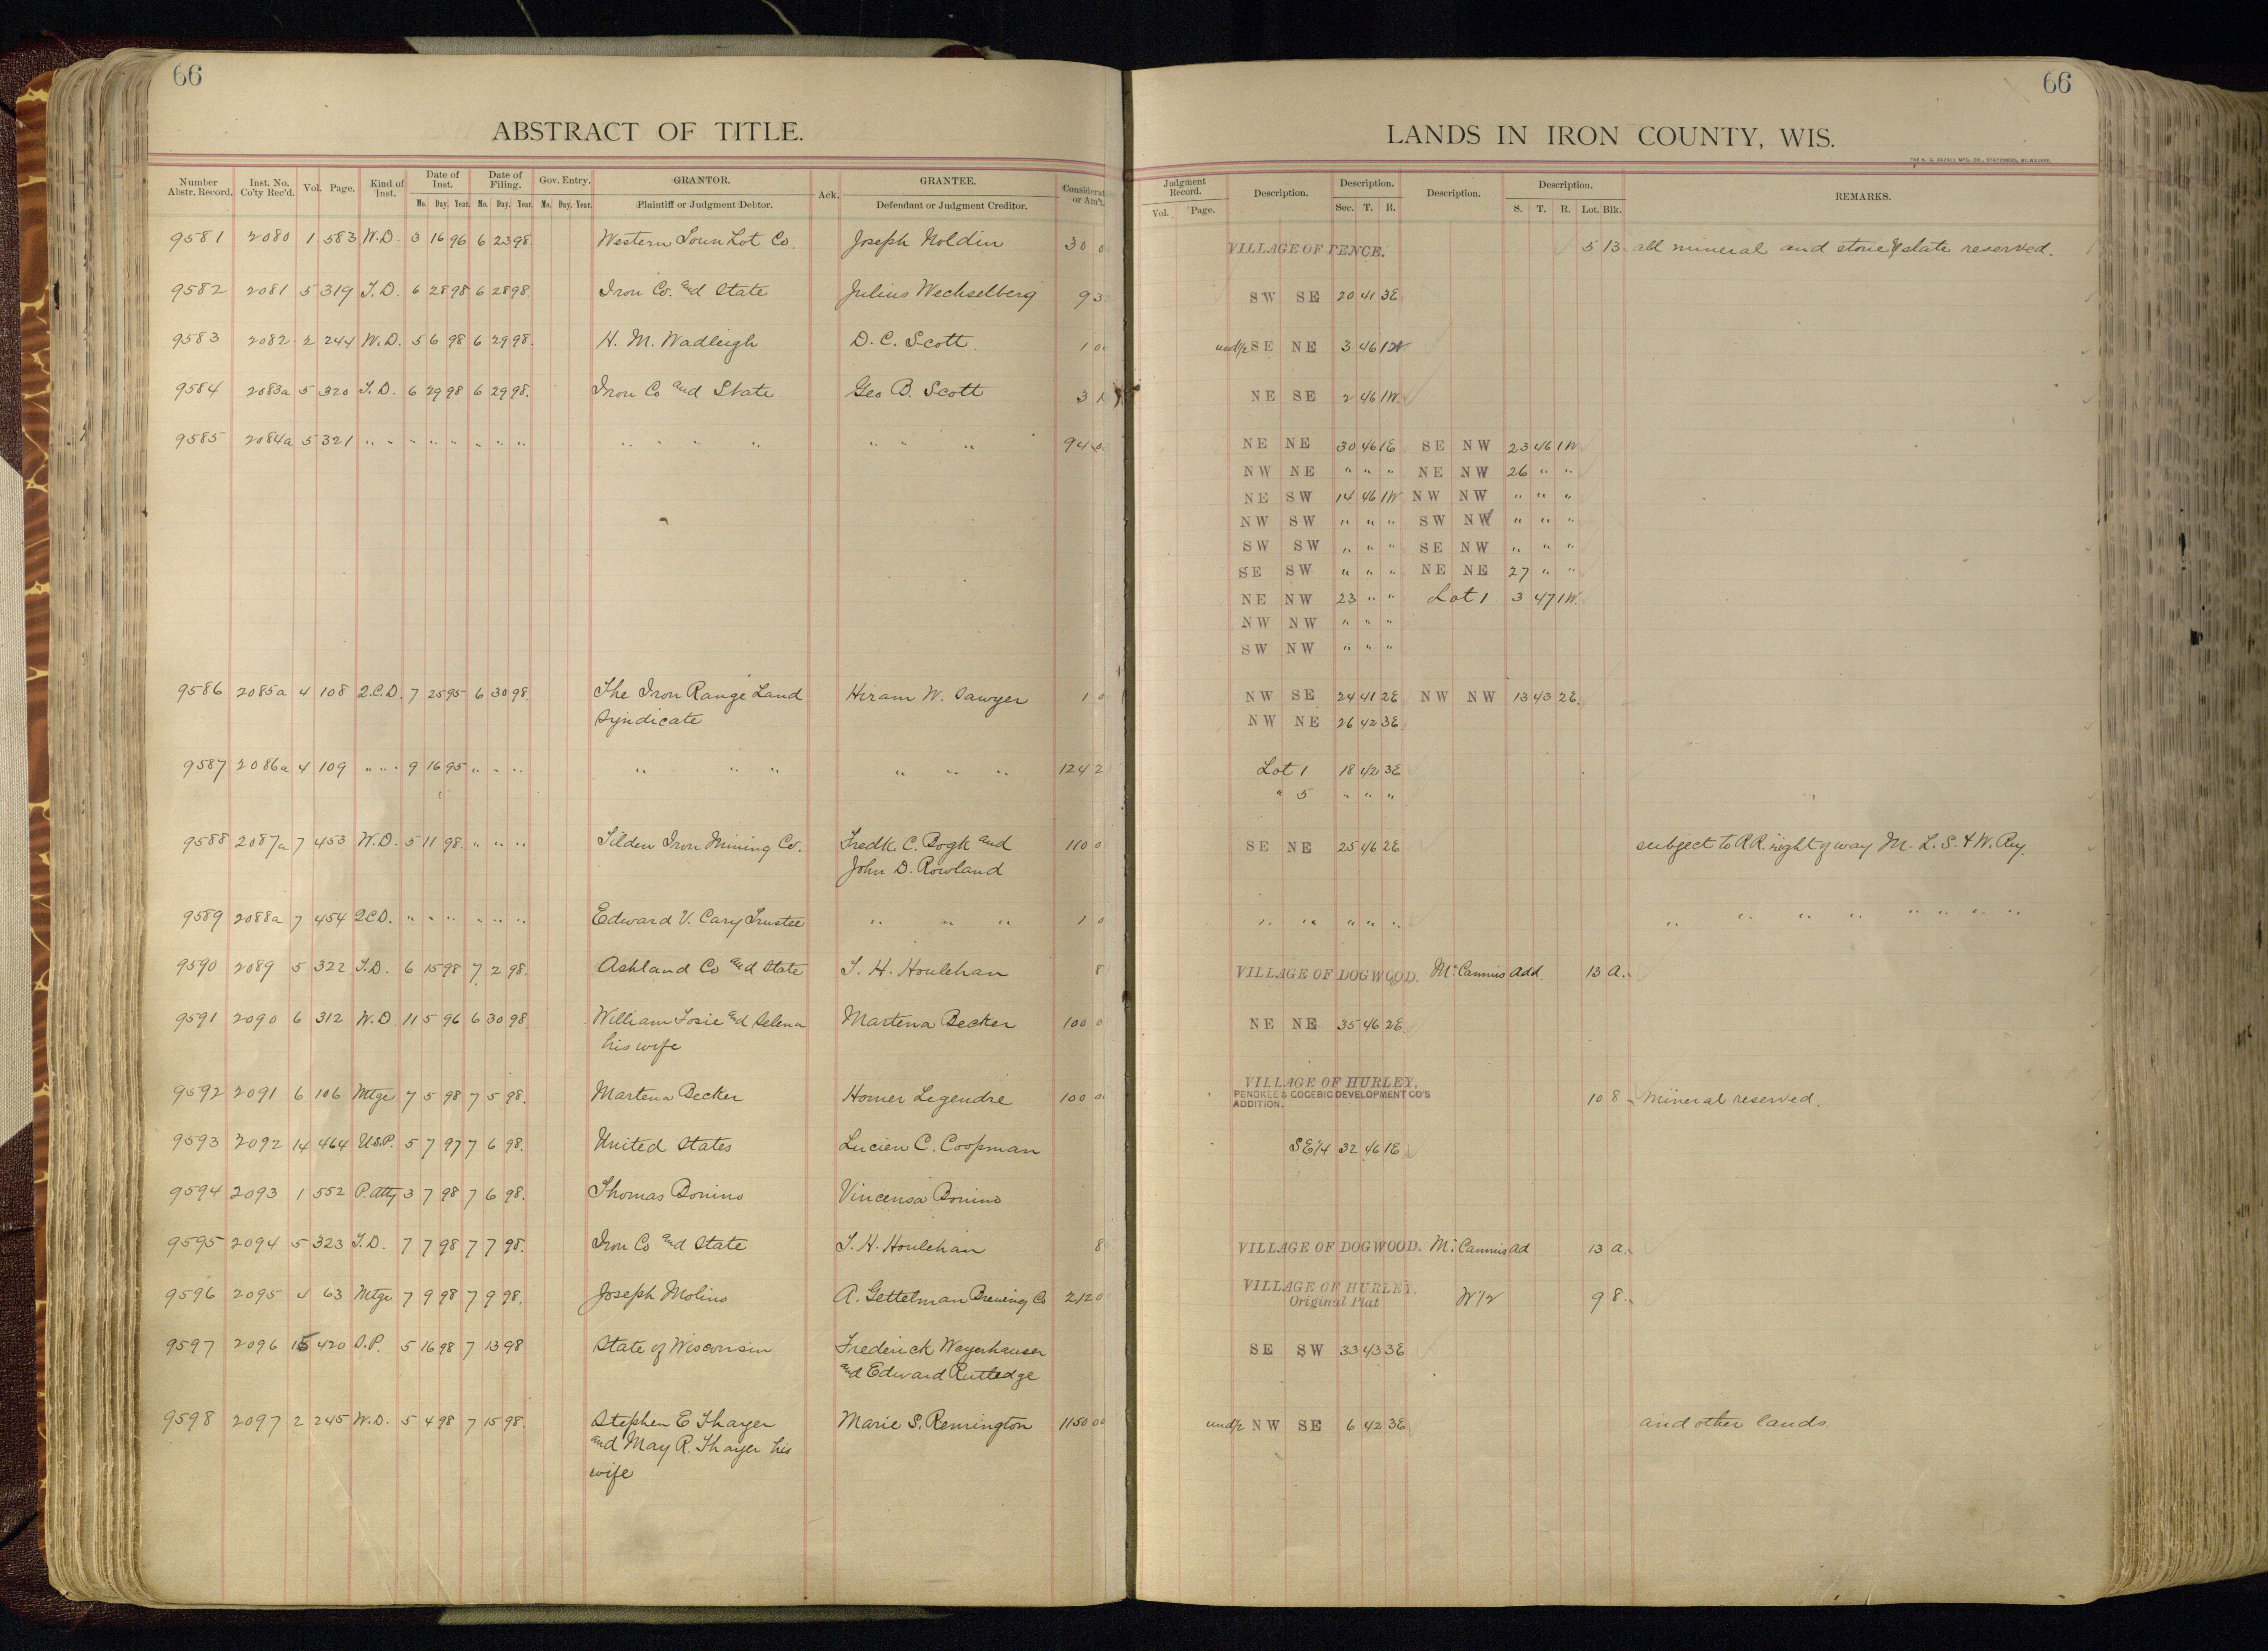 66
ABSTRACT OF TITLE.
Number Abstr. Record. Inst. No. Co'ty Rec'd. Vol. Page. Kind of Inst. Date of Inst. Date of Filing. Gov. Entry. GRANTOR. Ack. GRANTEE. Considerat or Am't.
Mo. Day. Year. Mo. Day. Year. Mo. Day. Year. Plaintiff or Judgment Debtor. Defendant or Judgment Creditor.
9581 2080 1 583 W.D. 3 16 96 6 23 98. Western Town Lot Co. Joseph Noldin 30 0
9582 2081 5 319 T.D. 6 28 98 6 28 98. Iron Co. and State Julius Wechselberg 9 3
9583 2082 2 244 W.D. 5 6 98 6 29 98. H. M. Wadleigh D. C. Scott. 1 0
9584 2083a 5 320 T.D. 6 29 98 6 29 98. Iron Co and State Geo B. Scott 3 1
9585 2084a 5 321 " " " " " " " " " " " " " " " 94 0
9586 2085a 4 108 Q.C.D. 7 25 95 6 30 98. The Iron Range Land Hiram W. Sawyer 1 0
Syndicate
9587 2086a 4 109 " " " 9 16 95 " " " " " " " " " 124 2
9588 2087a 7 453 W.D. 5 11 98. " " " Tilden Iron Mining Co. Fredk. C. Bogk and 110 0
John D. Rowland
9589 2088a 7 454 QCD. " " " " " " Edward V. Cary Trustee " " " 1 0
9590 2089 5 322 T.D. 6 15 98 7 2 98. Ashland Co and State T. H. Houlehan 8
9591 2090 6 312 W.D. 11 5 96 6 30 98. William Tosie and Selena Martena Becker 100 0
his wife
9592 2091 6 106 Mtge 7 5 98 7 5 98. Martena Becker Homer Legendre 100 0
9593 2092 14 464 U.S.P. 5 7 97 7 6 98. United States Lucien C. Coopman
9594 2093 1 552 P.Atty 3 7 98 7 6 98. Thomas Bonino Vincensa Bonino
9595 2094 5 323 T.D. 7 7 98 7 7 98. Iron Co and State T. H. Houlehan 8
9596 2095 4 63 Mtge 7 9 98 7 9 98. Joseph Molino A. Gettelman Brewing Co 212 0
9597 2096 15 420 S.P. 5 16 98 7 13 98 State of Wisconsin Frederick Weyerhauser
and Edward Rutledge
9598 2097 2 245 W.D. 5 4 98 7 15 98. Stephen E Thayer Marie S. Remington 1150 00
and May R. Thayer his
wife
66
LANDS IN IRON COUNTY, WIS.
THE H. G. RAZALL MFG. CO., STATIONERS, MILWAUKEE.
Judgment Record. Description. Description. Description. Description. REMARKS.
Vol. Page. Sec. T. R. S. T. R. Lot. Blk.
VILLAGE OF PENCE. 5 13. all mineral and stone & slate reserved.
SW SE 20 41 3E
und½ SE NE 3 46 1W
NE SE 2 46 1W.
NE NE 30 46 1E SE NW 23 46 1W
NW NE " " " NE NW 26 " "
NE SW 14 46 1W NW NW " " "
NW SW " " " SW NW " " "
SW SW " " " SE NW " " "
SE SW " " " NE NE 27 " "
NE NW 23 " " Lot 1 3 47 1W.
NW NW " " "
SW NW " " "
NW SE 24 41 2E NW NW 13 43 2E.
NW NE 26 42 3E.
Lot 1 18 42 3E
" 5 " " "
SE NE 25 46 2E subject to R.R. right of way M. L. S. & W. Ry.
" " " " " " " " " " " " "
VILLAGE OF DOGWOOD. McCannis Add. 13 A.
NE NE 35 46 2E
VILLAGE OF HURLEY,
PENOKEE & GOGEBIC DEVELOPMENT CO'S
ADDITION. 10 8. Mineral reserved.
SE1/4 32 46 1E
VILLAGE OF DOGWOOD. McCannis Ad 13 A.
VILLAGE OF HURLEY.
Original Plat W1/2 9 8.
SE SW 33 43 3E
und½ NW SE 6 42 3E and other lands.